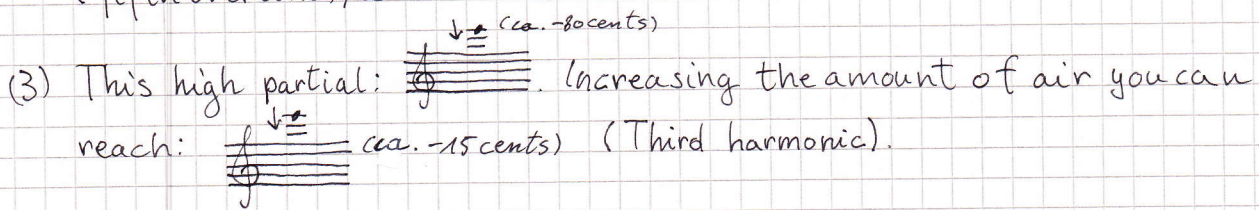 (ca. -80 cents)
(3) This high partial: . Increasing the amount of air you can
reach: (ca. -15 cents) (Third harmonic).